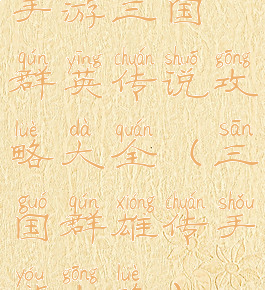 手游三国
qún yīng chuán shuō gōng
群英传说攻
lüè dà quán sān
略大全(三
guó qún xióng chuán shǒu
国群雄传手
yóu gōng lüè